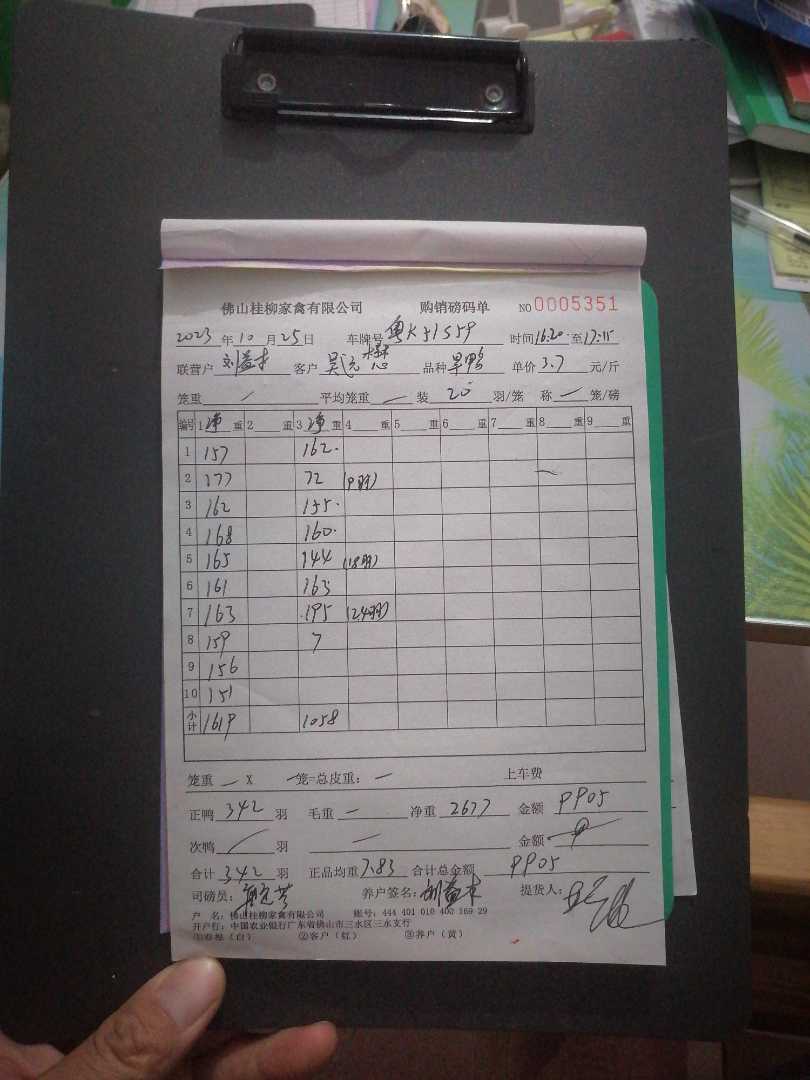 佛山桂柳家禽有限公司 购销磅码单 NO 0005351
2023年10月25日 车牌号 粤K51559 时间16:20至17:15
联营户 刘益才 客户 品种 旱鸭 单价 3.7 元/斤
笼重 / 平均笼重 — 装 20 羽/笼 称 — 笼/磅
编号 1净重 2 重 3净重 4 重 5 重 6 重 7 重 8 重 9 重
1 157 162.
2 177 72 (9羽)
3 162 155.
4 168 160.
5 165 144 (18羽)
6 161 163
7 163 195 (24羽)
8 159 7
9 156
10 151
小计 1619 1058
笼重 — X — 笼=总皮重: — 上车费
正鸭 342 羽 毛重 — 净重 2677 金额 9905
次鸭 / 羽 — 金额
合计 342 羽 正品均重 7.83 合计总金额 9905
司磅员: 养户签名: 提货人:
户 名: 佛山桂柳家禽有限公司 账号: 444 401 010 400 169 29
开户行: 中国农业银行广东省佛山市三水区三水支行
①存根(白) ②客户(红) ③养户(黄)